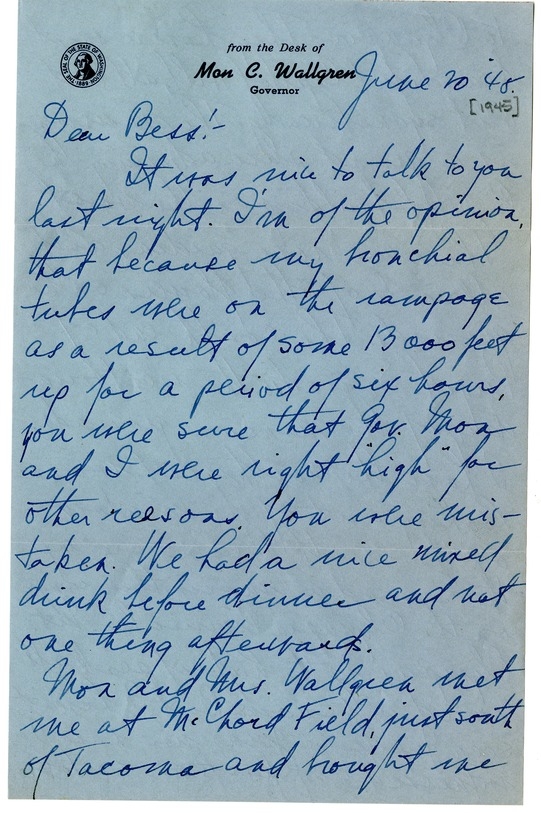 THE SEAL OF THE STATE OF WASHINGTON 1889
from the Desk of
Mon C. Wallgren
Governor
June 20 '48.
[1945]
Dear Bess:-
It was nice to talk to you
last night. I'm of the opinion,
that because my bronchial
tubes were on the rampage
as a result of some 13000 feet
up for a period of six hours,
you were sure that Gov. Mon
and I were right "high" for
other reasons. You were mis-
taken. We had a nice mixed
drink before dinner and not
one thing afterwards.
Mon and Mrs. Wallgren met
me at McChord Field, just south
of Tacoma and brought me